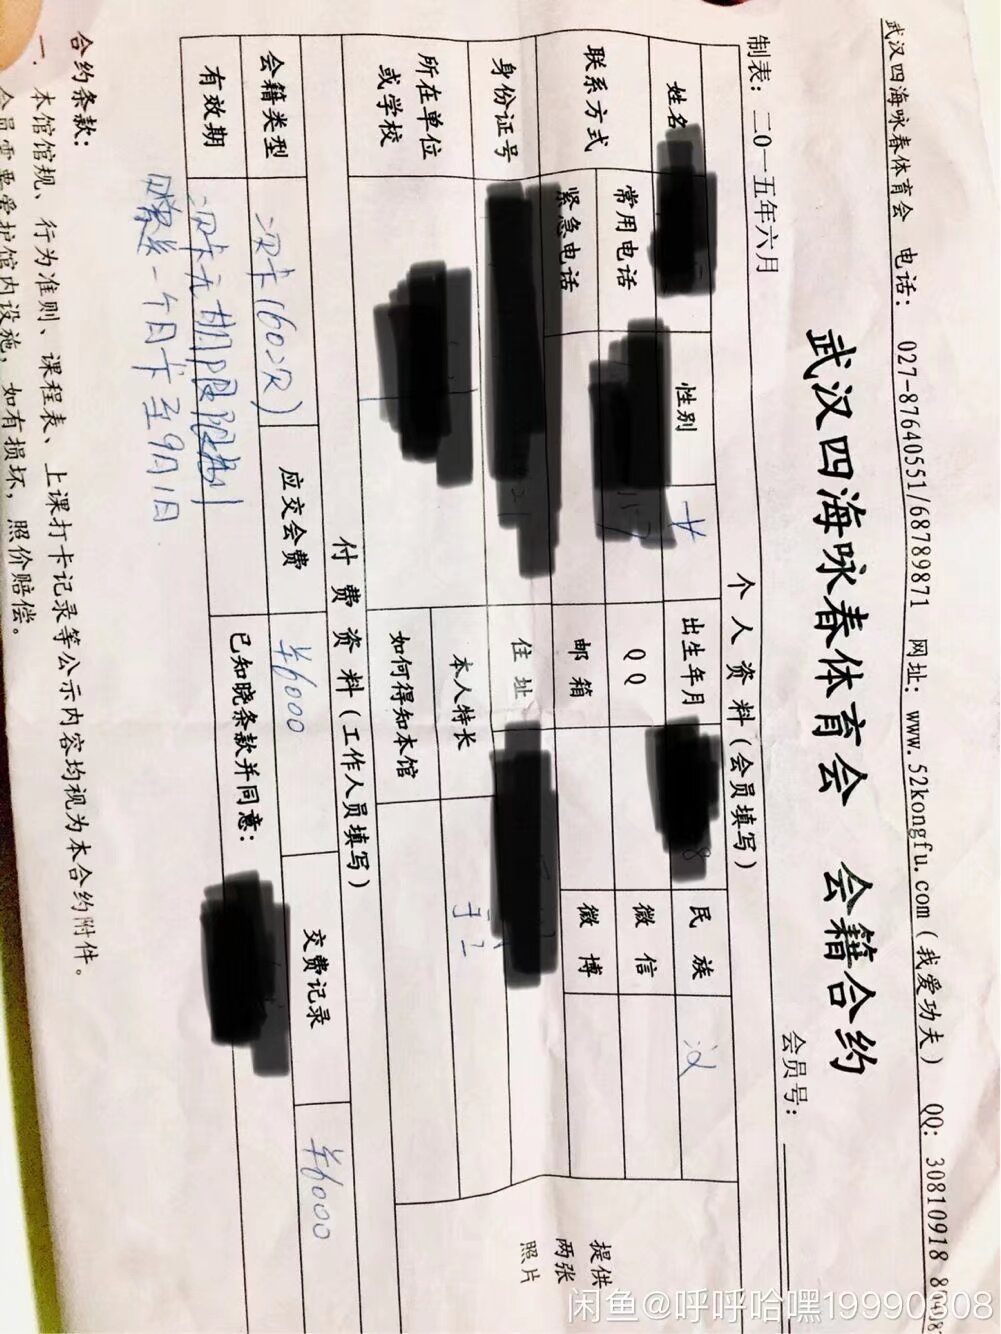 武汉四海咏春体育会 电话: 027-87640551/68789871 网址: www.52kongfu.com(我爱功夫) QQ: 30810918
武汉四海咏春体育会 会籍合约
制表: 二〇一五年六月
会员号:
个人资料(会员填写)
姓名 性别 女 出生年月 民族 汉
联系方式 常用电话 QQ 微信
紧急电话 邮箱 微博
身份证号 住址
所在单位或学校 本人特长
如何得知本馆
提供
两张
照片
付费资料(工作人员填写)
会籍类型 次卡(160次) 应交会费 ¥6000 交费记录 ¥6000
有效期 次卡无期限限制 已知晓条款并同意:
一个月卡至9月1日
合约条款:
一. 本馆馆规、行为准则、课程表、上课打卡记录等公示内容均视为本合约附件。
会员需要爱护馆内设施,如有损坏,照价赔偿。
闲鱼@呼呼哈嘿19990808